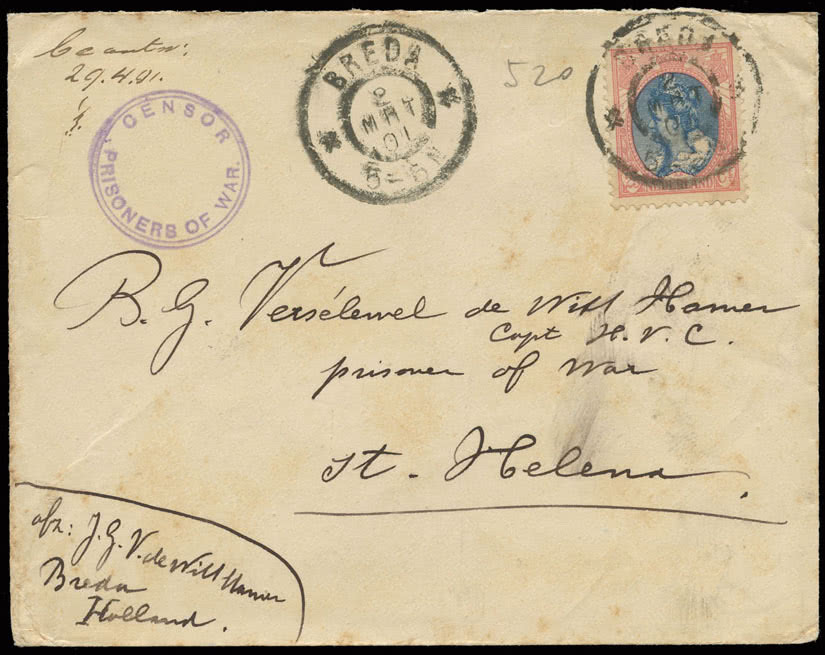 Beantw:
29.4.01.
CENSOR
PRISONERS OF WAR.
BREDA
2
MRT
01
5-6N
520
BREDA
MRT
01
B. G. Versélewel de Witt Hamer
Capt H. V. C.
prisoner of War
St. Helena.
afz: J. G. V. de Witt Hamer
Breda
Holland.